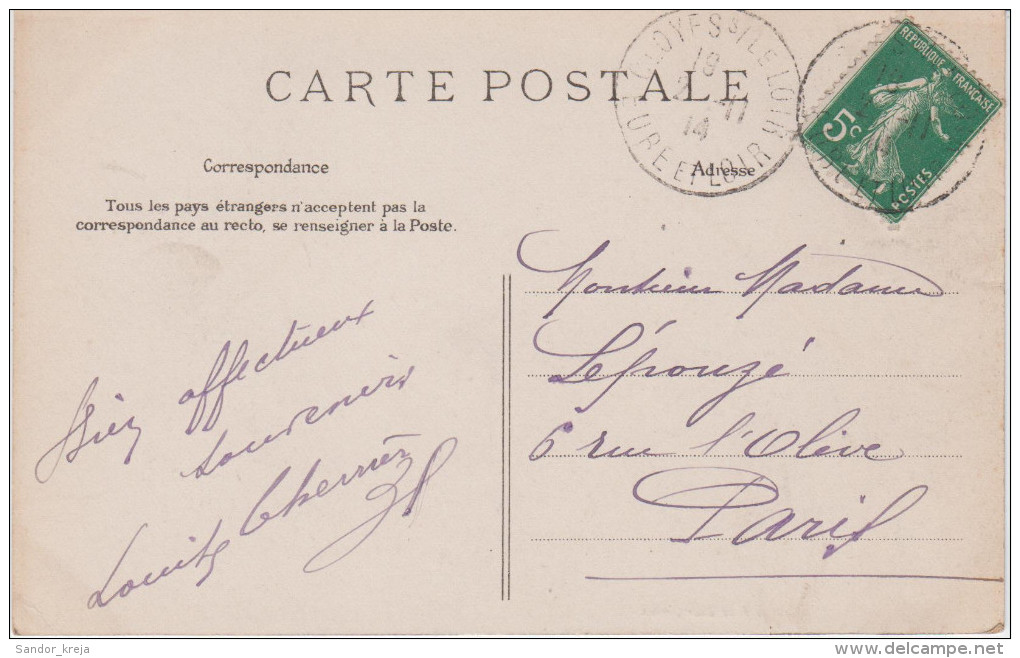 CARTE POSTALE
CLOYES S/ LE LOIR
18
2 - 11
14
EURE ET LOIR
REPUBLIQUE FRANÇAISE
5c
POSTES
Correspondance
Adresse
Tous les pays étrangers n'acceptent pas la
correspondance au recto, se renseigner à la Poste.
Monsieur Madame
Lépouzé
6 rue l'Olive
Paris
Bien affectueux
souvenirs
Sandor_kreja
delcampe.net